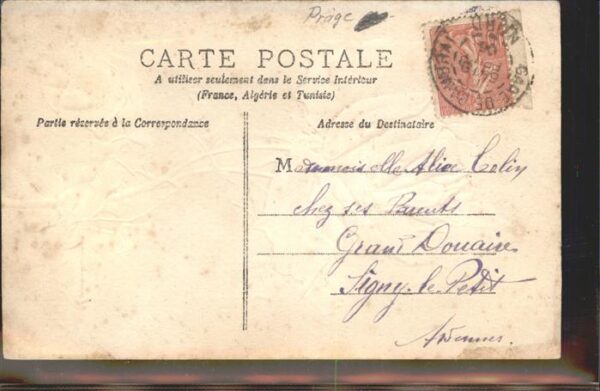 Prage
CARTE POSTALE
A utiliser seulement dans le Service Intérieur
(France, Algérie et Tunisie)
Partie réservée à la Correspondance
Adresse du Destinataire
Mademoiselle Alice Colin
chez ses Parents
Grand Douaire
Signy-le-Petit
Ardennes.